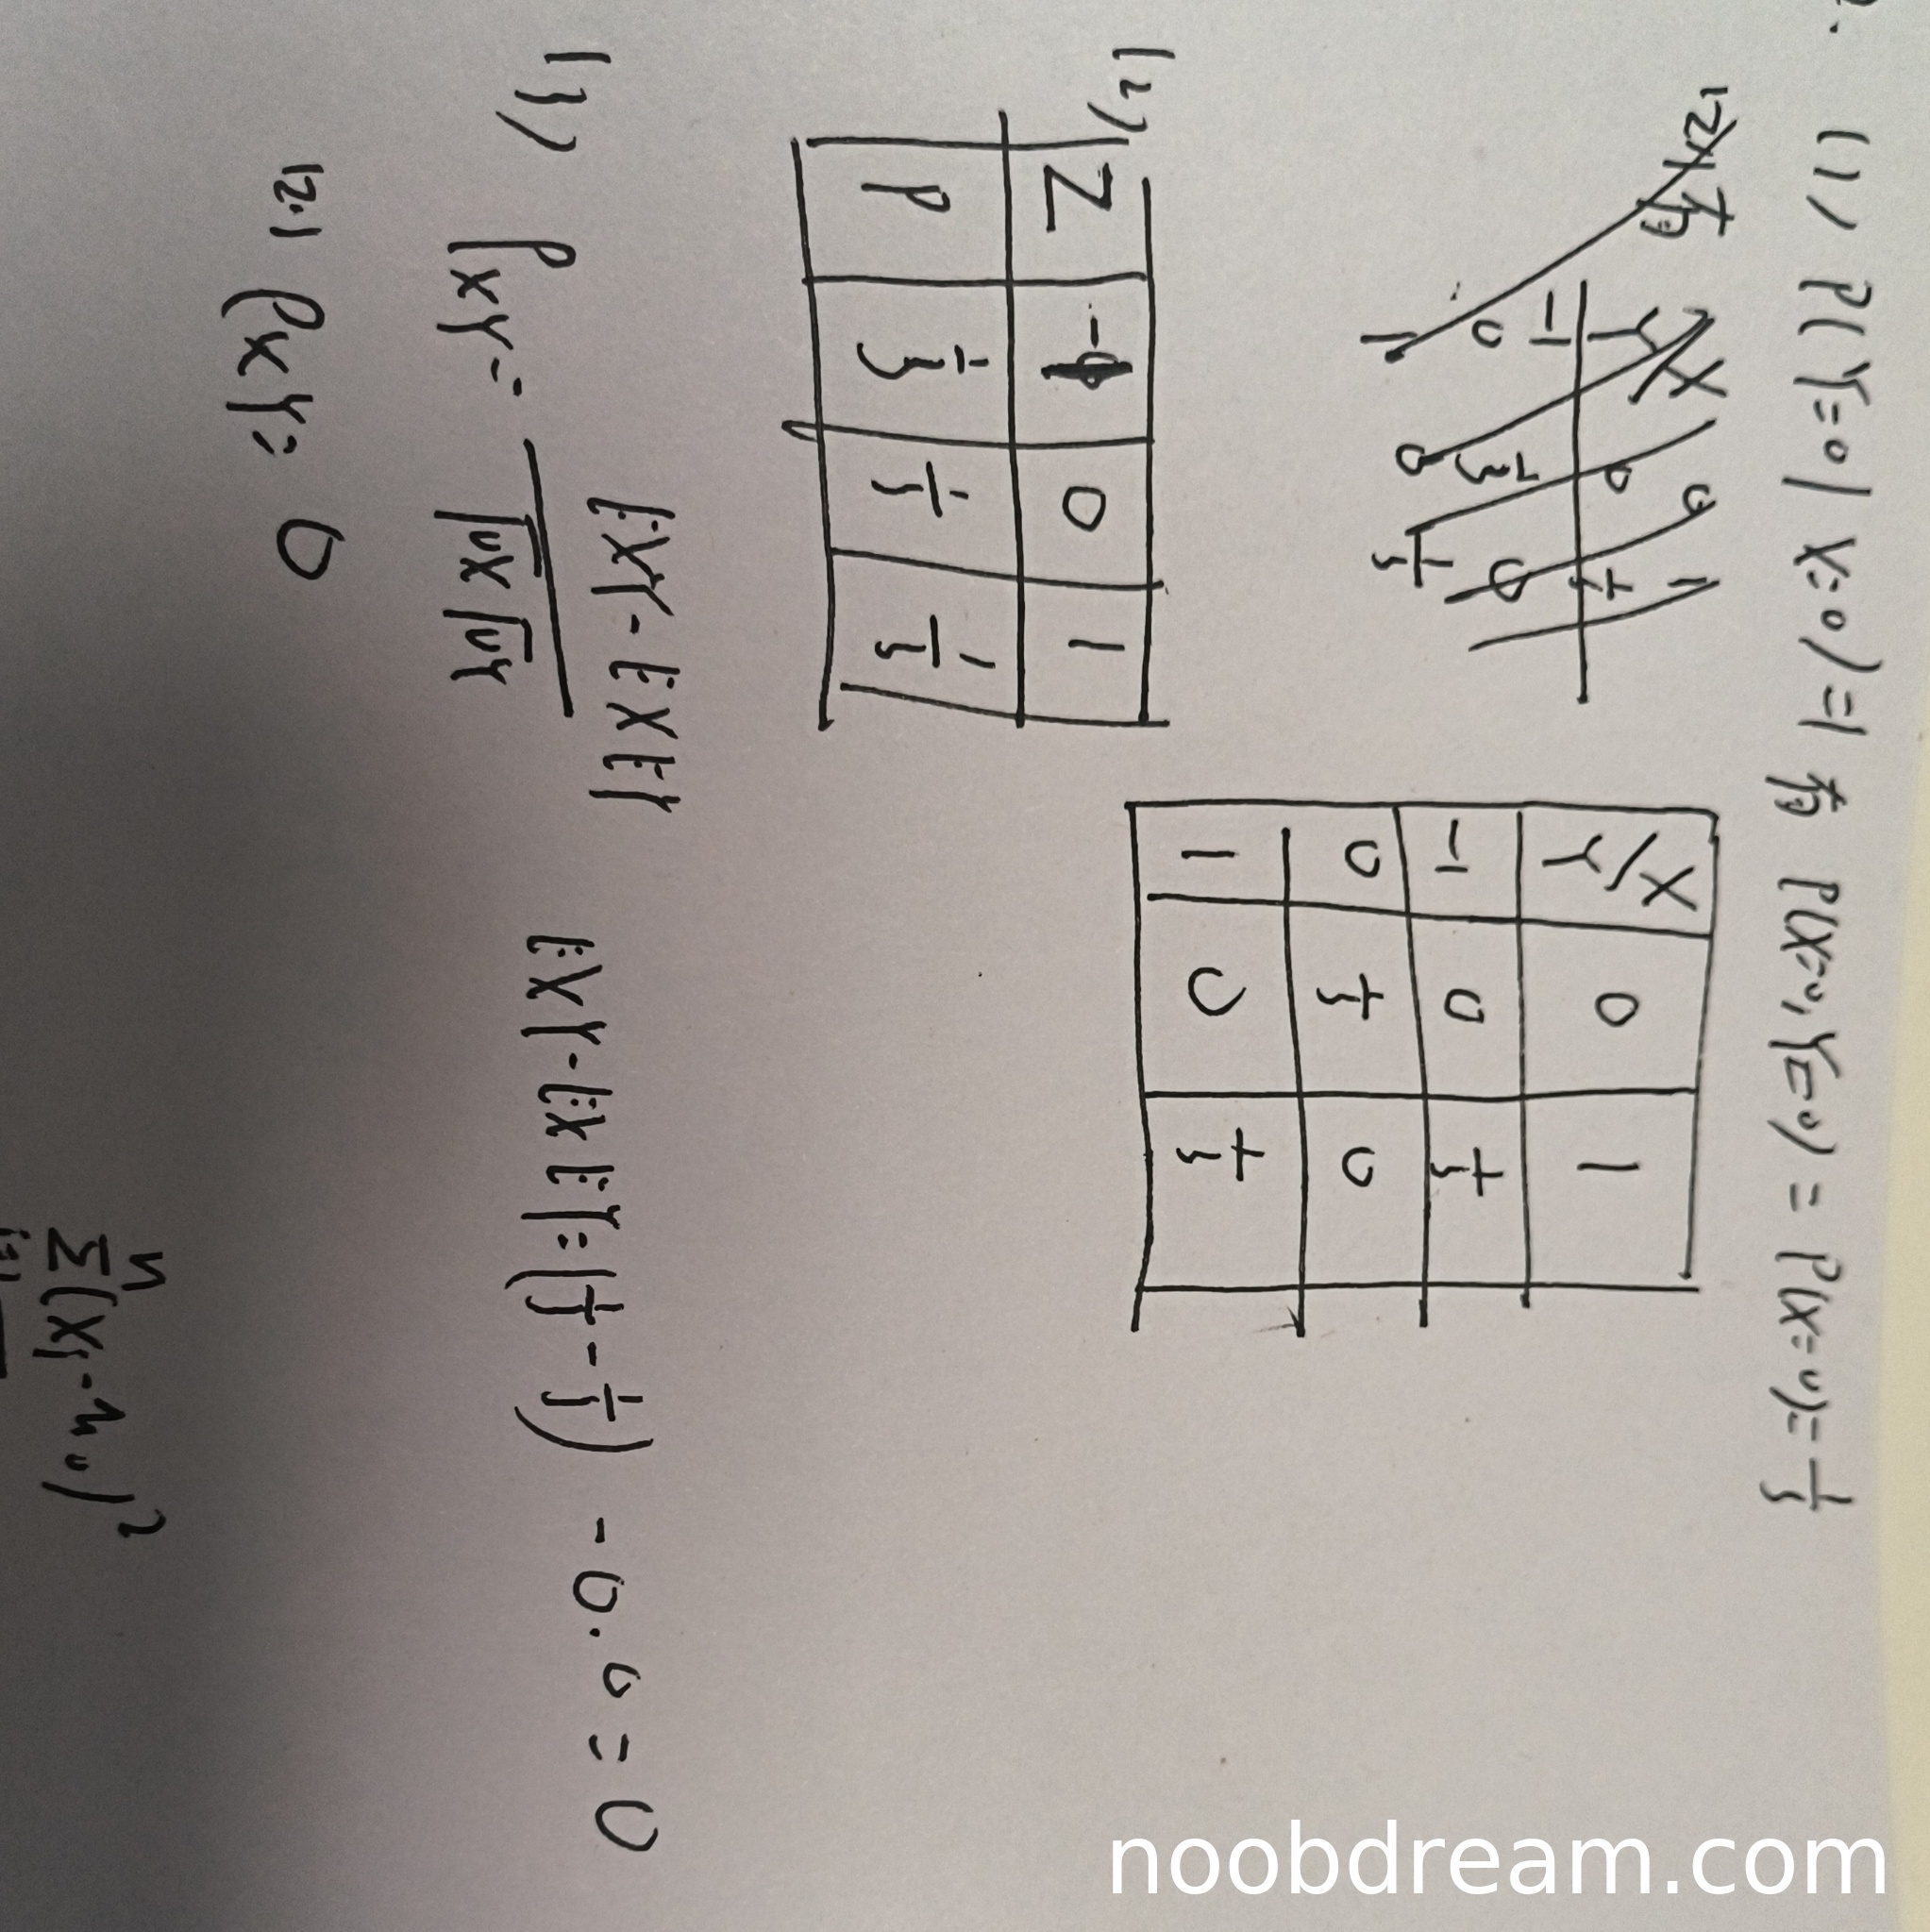 (1) P(Y=0|X=0)=1 有 P(X=0,Y=0) = P(X=0)= 1/3
X/Y 0 1
-1 0 1/3
0 1/3 0
1 0 1/3
(2)
Z -1 0 1
P 1/3 1/3 1/3
(3) ρXY = (EXY - EXEY) / (√DX √DY) EXY - EXEY = (1/3 - 1/3) - 0·0 = 0
ρXY = 0
n
Σ (Xi - μ0)²
i=1
noobdream.com